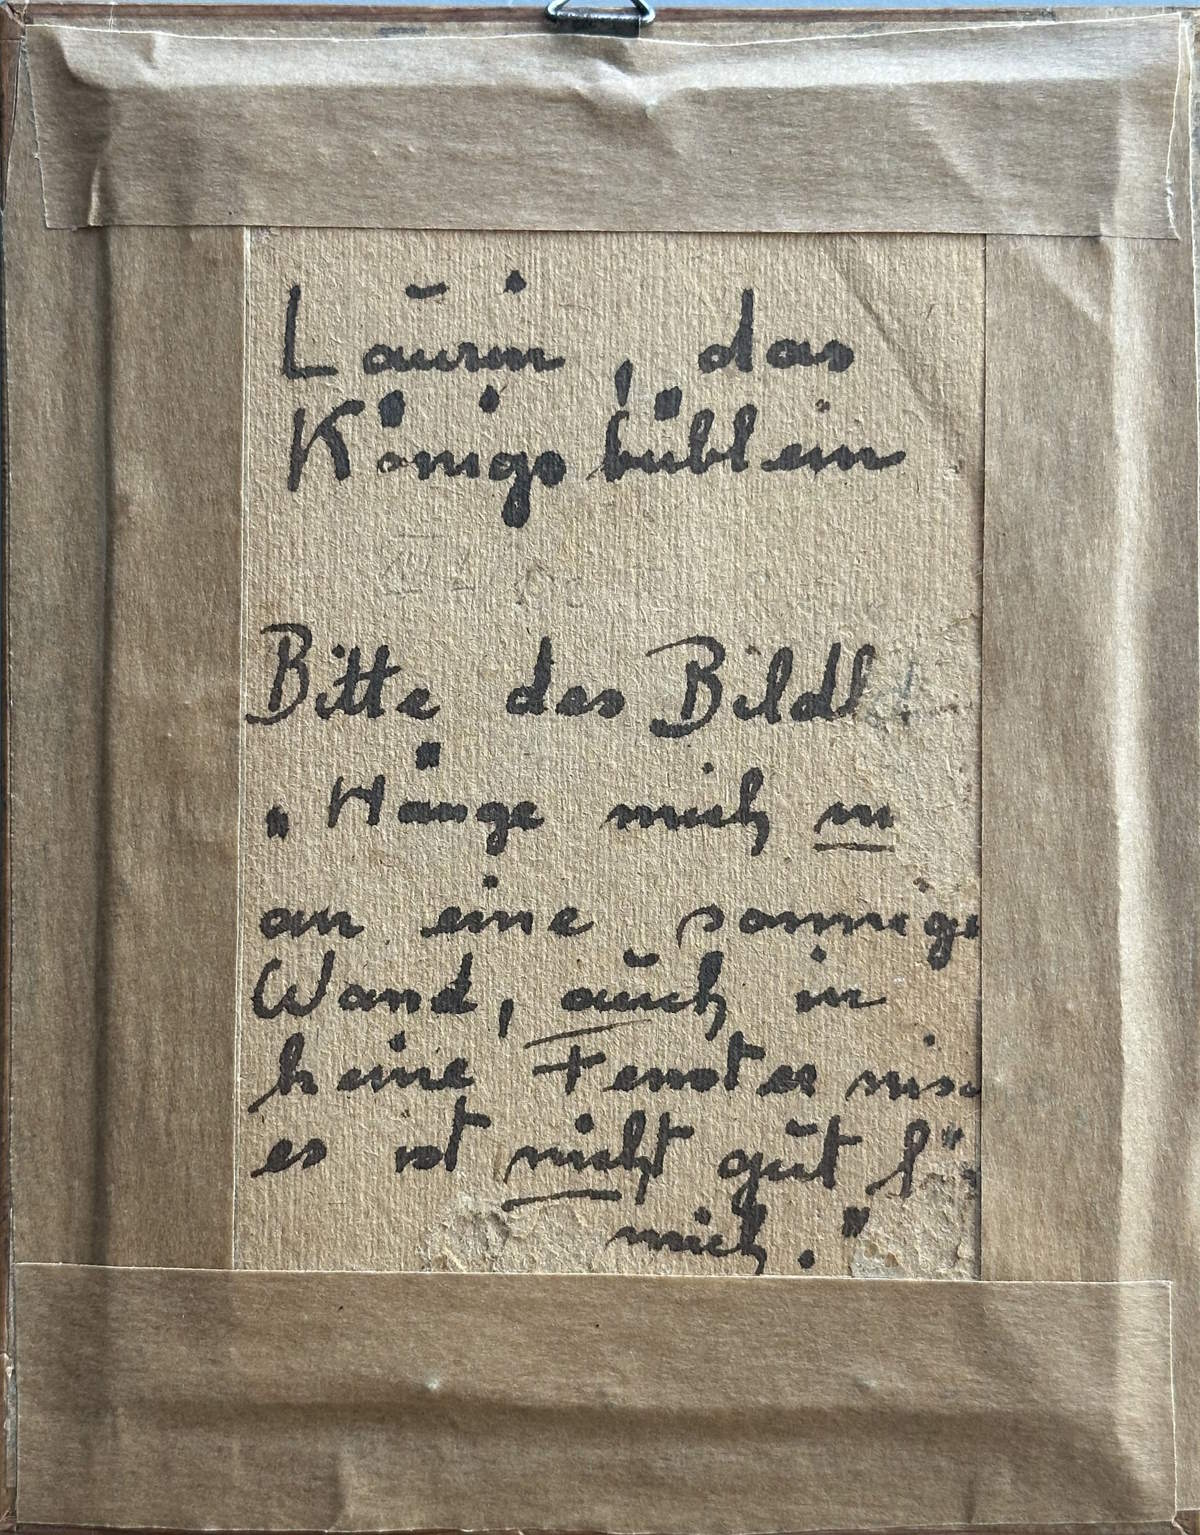 Laurin, das
Königsbüblein
Bitte des Bildl
„Hänge mich
an eine sonnige
Wand, auch in
keine Fensternisc
es ist nicht gut für
mich."